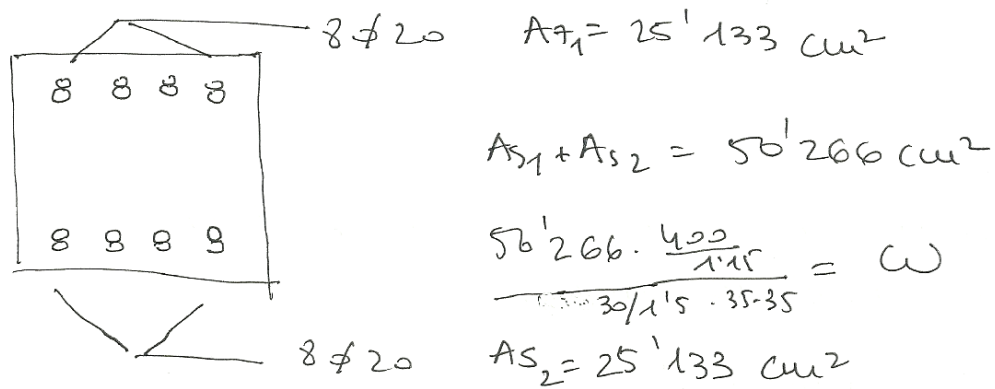 8 ø 20 A71 = 25'133 cm²
8 8 8 8
As1 + As2 = 50'266 cm²
8 8 8 8
50'266 · 400/1'15 / 30/1'5 · 35·35 = ω
8 ø 20 As2 = 25'133 cm²